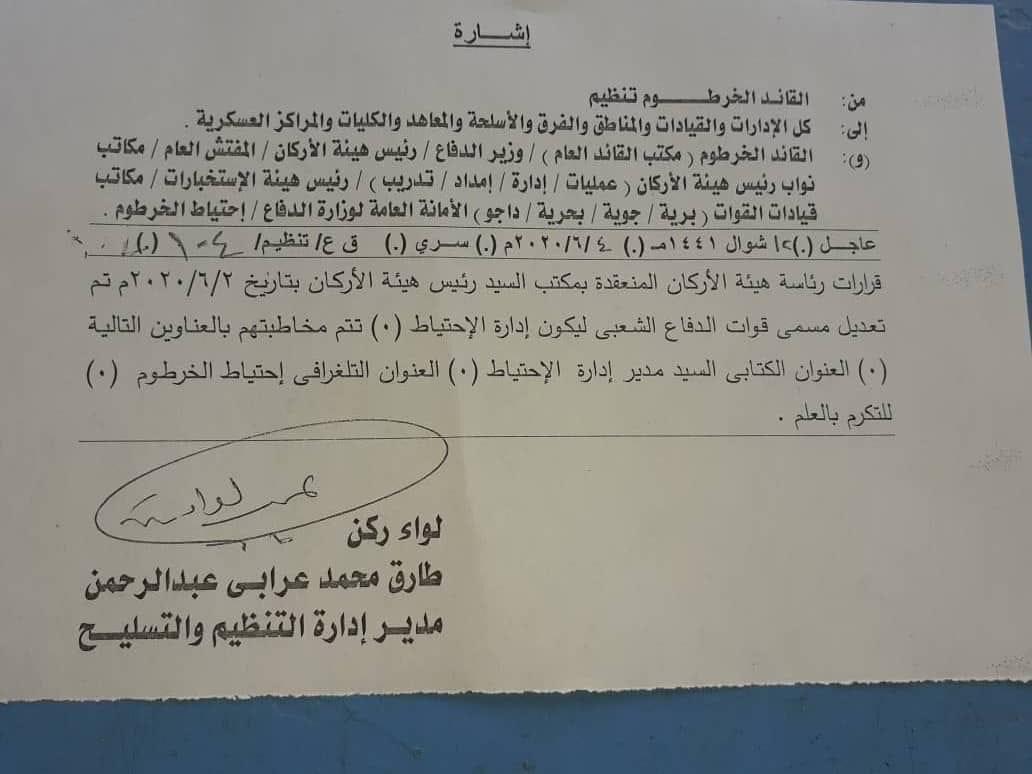 إشارة
من: القائد الخرطوم تنظيم
إلى: كل الإدارات والقيادات والمناطق والفرق والأسلحة والمعاهد والكليات والمراكز العسكرية .
(و): القائد الخرطوم ( مكتب القائد العام ) / وزير الدفاع / رئيس هيئة الأركان / المفتش العام / مكاتب
نواب رئيس هيئة الأركان ( عمليات / إدارة / إمداد / تدريب ) / رئيس هيئة الإستخبارات / مكاتب
قيادات القوات ( برية / جوية / بحرية / داجو ) الأمانة العامة لوزارة الدفاع / إحتياط الخرطوم .
عاجل (.) ١٢ شوال ١٤٤١هـ (.) ٢٠٢٠/٦/٤م (.) سري (.) ق ع/ تنظيم/ (.)
قرارات رئاسة هيئة الأركان المنعقدة بمكتب السيد رئيس هيئة الأركان بتاريخ ٢٠٢٠/٦/٢م تم
تعديل مسمى قوات الدفاع الشعبى ليكون إدارة الإحتياط (٠) تتم مخاطبتهم بالعناوين التالية
(٠) العنوان الكتابى السيد مدير إدارة الإحتياط (٠) العنوان التلغرافى إحتياط الخرطوم (٠)
للتكرم بالعلم .
لواء ركن
طارق محمد عرابى عبدالرحمن
مدير إدارة التنظيم والتسليح